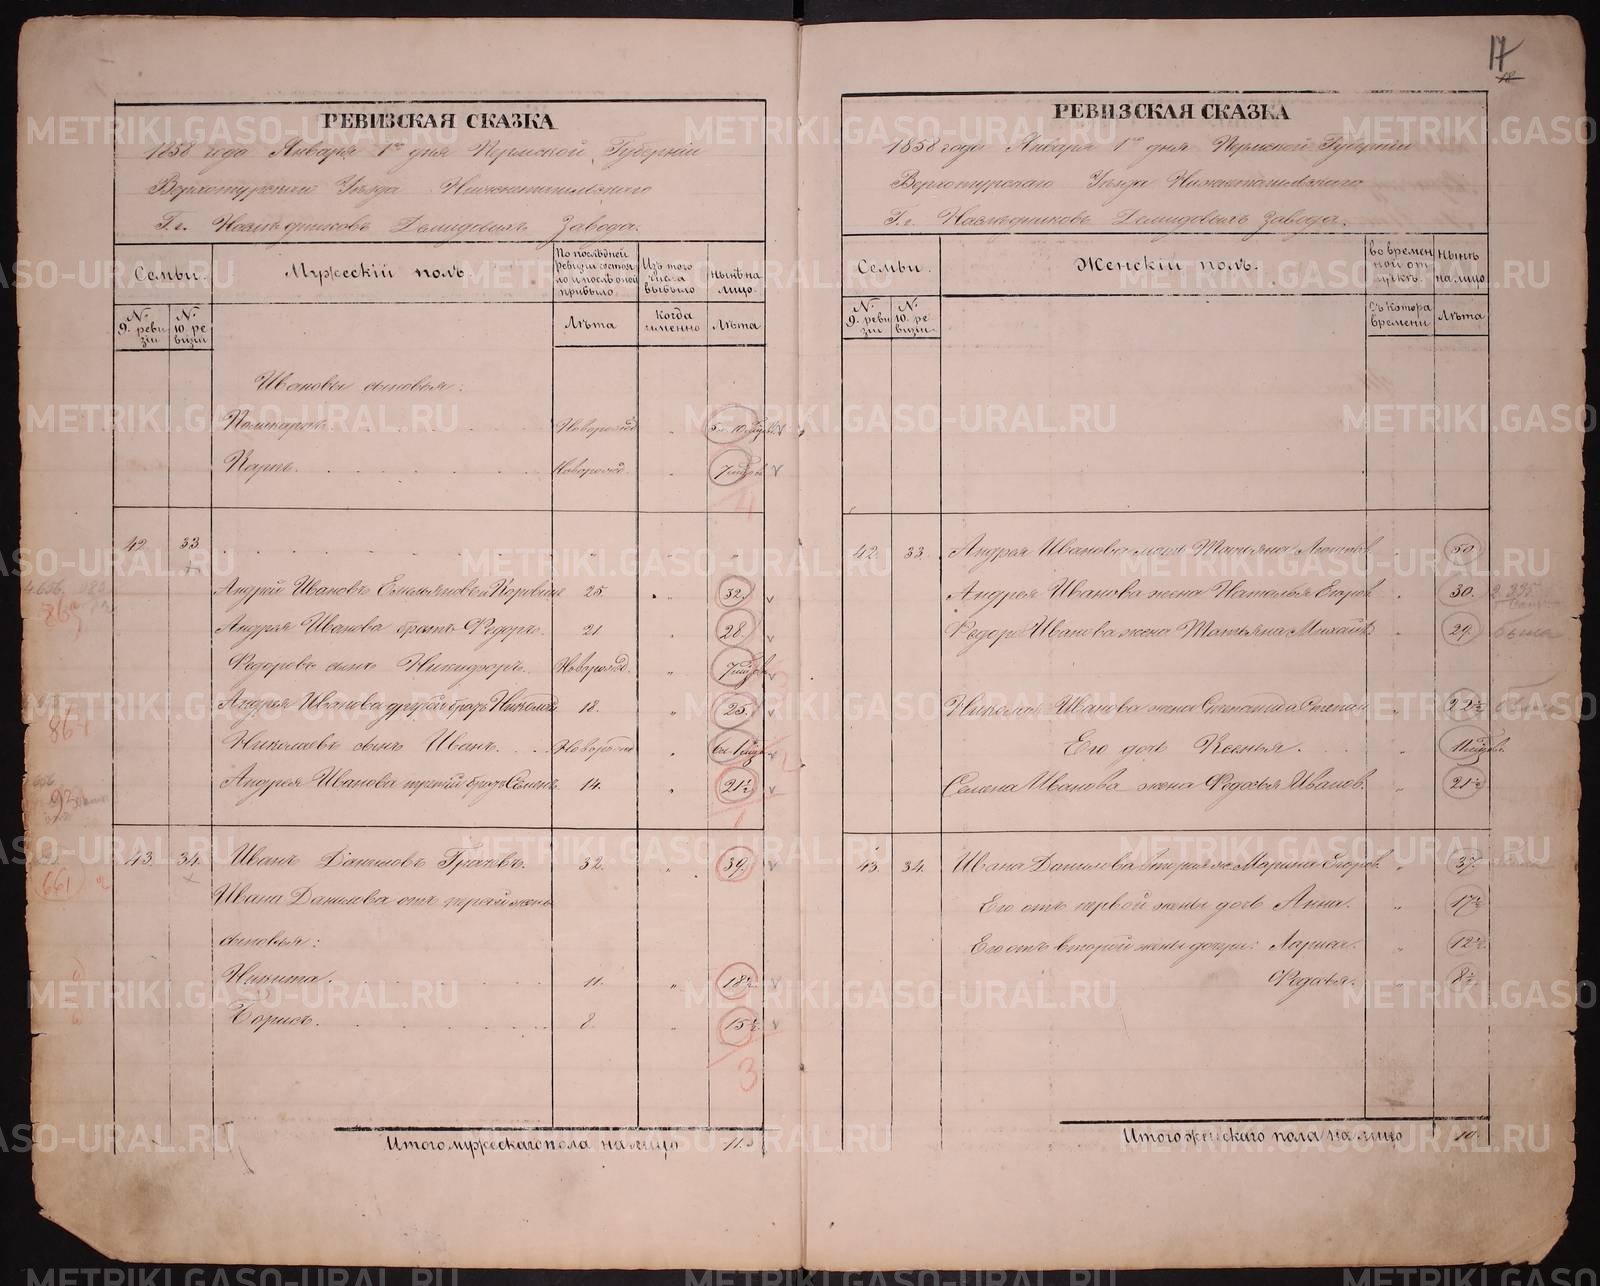 17
РЕВИЗСКАЯ СКАЗКА
1858 года Января 1го дня Пермской Губерніи
Верхотурскаго Уѣзда Нижнетагильскаго
Г.г. Наслѣдниковъ Демидовыхъ Завода.
Семьи.
Мужескій полъ.
По послѣдней ревизіи состояло и послѣ оной прибыло.
Изъ того числа выбыло
Нынѣ на лицо.
№ 9. ревизіи
№ 10. ревизіи
Лѣта
когда именно
Лѣта
Ивановы сыновья:
Поликарпъ. Новорожд. „ 5
Карпъ. Новорожд. „ 7
42. 33
Андрей Ивановъ Емельяновъ и Коровинъ 25 „ 32.
Андрея Иванова братъ Федоръ. 21 „ 28.
Федоровъ сынъ Никифоръ. Новорожд. „ 7
Андрея Иванова другой братъ Николай 18. „ 25.
Николаевъ сынъ Иванъ. Новорожд „
Андрея Иванова третій братъ Семенъ. 14. „ 21½
43. 34. Иванъ Даниловъ Грачевъ. 32. „ 39.
Ивана Данилова отъ первой жены
сыновья:
Никита. 11. „ 18½
Борисъ. 8 „ 15½
3
Итого мужескаго пола на лицо 11.
РЕВИЗСКАЯ СКАЗКА
1858 года Января 1го дня Пермской Губерніи
Верхотурскаго Уѣзда Нижнетагильскаго
Г.г. Наслѣдниковъ Демидовыхъ Завода.
Семьи.
Женскій полъ.
во временной отлучкѣ.
Нынѣ на лицо.
№ 9. ревизіи
№ 10. ревизіи
Съ котора времени
Лѣта
42. 33. Андрея Иванова мать Татьяна „ 50.
Андрея Иванова жена Наталья Егоров. „ 30.
Федора Иванова жена Татьяна Михайл. „ 29.
Николая Иванова жена Степанида Степан. „ 22½
Его дочь Ксенья. „ 11
Семена Иванова жена Федосья Иванов. „ 21½
43. 34. Ивана Данилова вторая ж. Марина Егоров. „ 37.
Его отъ первой жены дочь Анна. „ 17½
Его отъ второй жены дочери: Лариса. „ 12½
Федосья. „ 8½
Итого женскаго пола на лицо 10.
METRIKI.GASO-URAL.RU